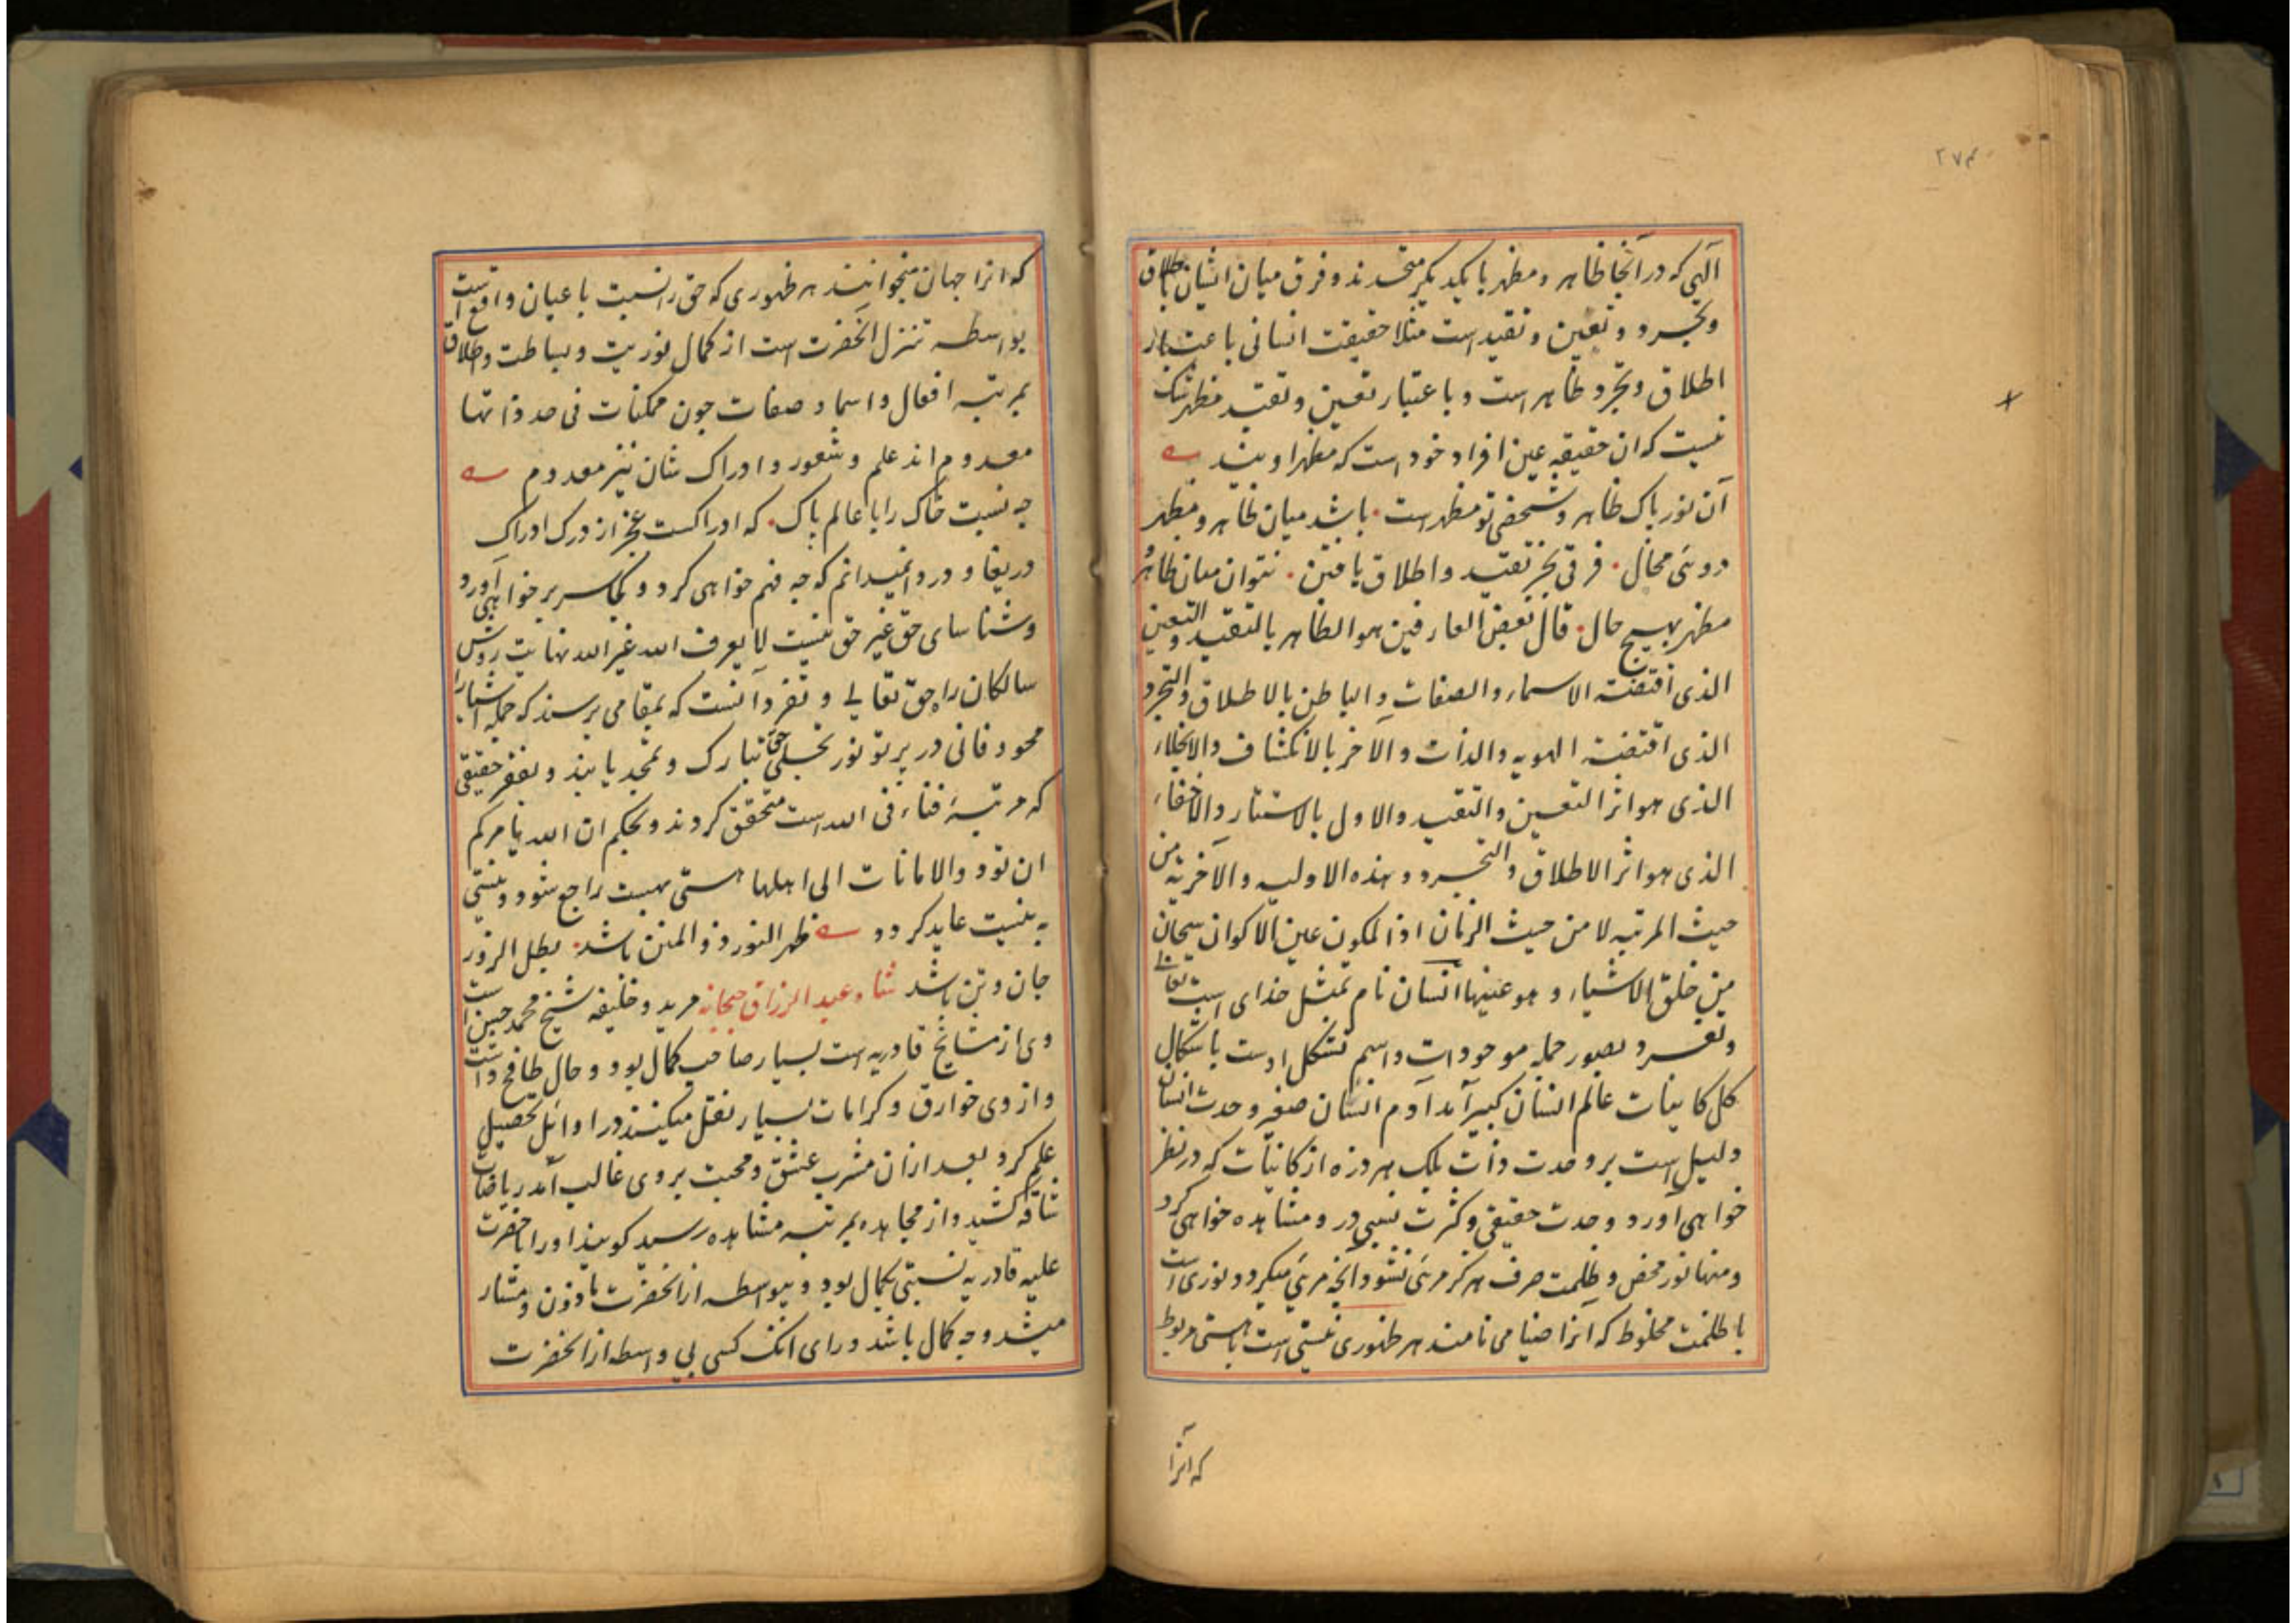 الهی که در آنجا ظاهر و مظهر با یکدیگر متحدند و فرق میان ایشان باطلاق
و تجرد و تعین و تقید است مثلا حقیقت انسانی باعتبار
اطلاق و تجرد ظاهر است و باعتبار تعین و تقید مظهر شک
نیست که ان حقیقه عین افراد خود است که مظهر اویند
آن نور پاک ظاهر و شخص تو مظهر است ٠ باشد میان ظاهر و مظهر
دوئی محال ٠ فرقی بجز تقید و اطلاق یافتن ٠ نتوان میان ظاهر و
مظهر بهیچ حال ٠ قال بعض العارفین هو الظاهر بالتقید والتعین
الذی اقتضته الاسماء والصفات و الباطن بالاطلاق والتجرد
الذی اقتضته الهویه والذات والآخر بالانکشاف والانجلاء
الذی هو اثر التعین والتقید والاول بالاستتار والاخفاء
الذی هو اثر الاطلاق والتجرد و هذه الاولیه والآخریه من
حیث المرتبه لا من حیث الزمان اذ المکون عین الاکوان سبحان
من خلق الاشیاء و هو عینها انسان نام تمثل خدای است تعالی
و تفرد بصور جمله موجودات و اسم تشکل اوست باشکال
کل کاینات عالم انسان کبیر آمد آدم انسان صغیر وحدت انسان
دلیل است بر وحدت ذات بلکه هر ذره از کاینات که در نظر
خواهی آورد وحدت حقیقی و کثرت نسبی در و مشاهده خواهی کرد
و منها نور محض و ظلمت صرف هرگز مرئی نشود آنچه مرئی میگردد نوری است
با ظلمت مخلوط که آنرا ضیا می نامند هر ظهوری نیستی است با هستی مربوط
که آنرا
که انرا جهان میخوانند هر ظهوری که حق را نسبت باعیان واقع است
بواسطه تنزل آنحضرت است از کمال نوریت و بساطت و اطلاق
بمرتبه افعال و اسما و صفات چون ممکنات فی حد ذاتها
معدوم اند علم و شعور و ادراک شان نیز معدوم
چه نسبت خاک را با عالم پاک ٠ که ادراکست عجز از درک ادراک
دریغا و دردا نمیدانم که چه فهم خواهی کرد و بکجا سر بر خواهی آورد
و شناسای حق غیر حق نیست لا یعرف الله غیر الله نهایت روش
سالکان راه حق تعالی و تفرد آنست که بمقامی برسند که جمله اشیا را
محو و فانی در پرتو نور تجلی حق تبارک و تمجد یابند و بفقر حقیقی
که مرتبهٔ فناء فی الله است متحقق گردند و بحکم ان الله یامرکم
ان تودوالامانات الی اهلها هستی بهست راجع شود و نیستی
به نیست عاید گردد ظهر النور ذو المنن باشد ٠ بطل الزور
جان و تن باشد شاه عبدالرزاق جهجانه مرید و خلیفه شیخ محمد حسن است
وی از مشایخ قادریه است بسیار صاحب کمال بود و حال طافح داشت
و از وی خوارق و کرامات بسیار نقل میکنند در اوائل تحصیل
علم کرد بعد ازان مشرب عشق و محبت بر وی غالب آمد ریاضات
شاقه کشید و از مجاهده بمرتبه مشاهده رسید گویند او را با حضرت
علیه قادریه نسبتی بکمال بود و بیواسطه از آنحضرت ماذون و مشار
میشد و چه کمال باشد ورای آنکه کسی بی واسطه از آنحضرت